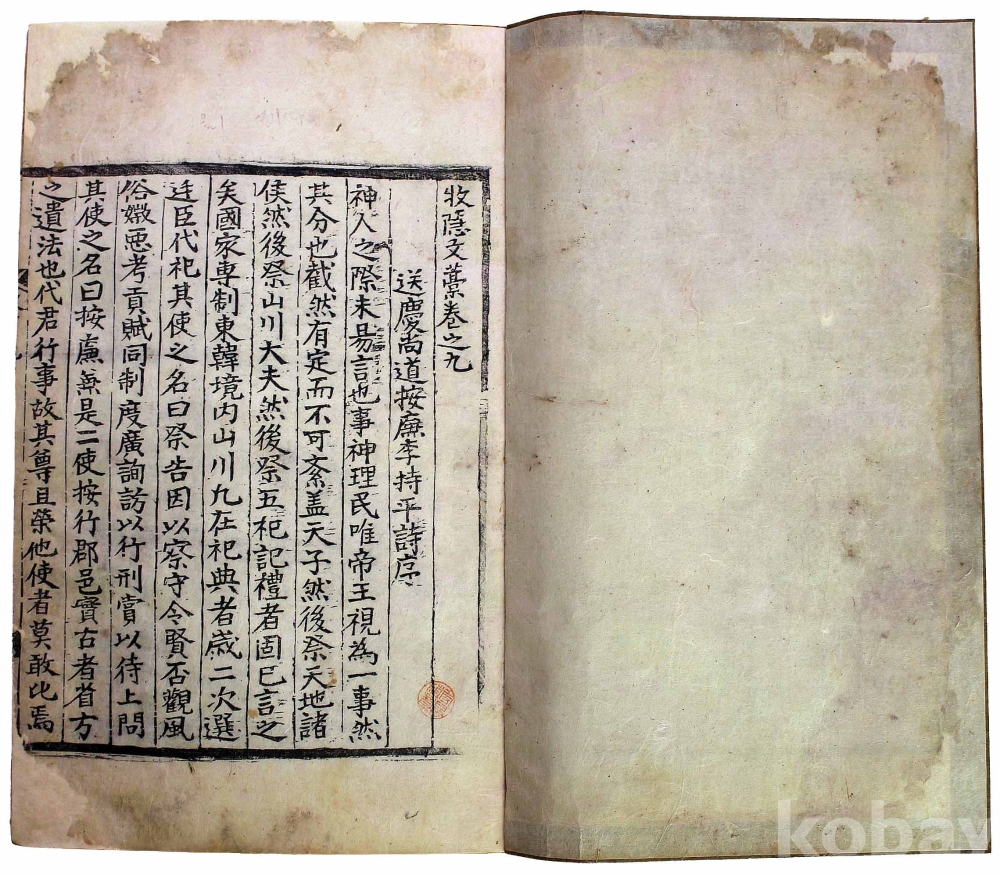 牧隱文藁卷之九
送慶尚道按廉李持平詩序
神人之際未易言也事神理民唯帝王視為一事然
其分也截然有定而不可紊盖天子然後祭天地諸
侯然後祭山川大夫然後祭五祀記禮者固已言之
矣國家專制東韓境内山川凡在祀典者歲二次選
廷臣代祀其使之名曰祭告因以察守令賢否觀風
俗媺惡考貢賦同制度廣詢訪以行刑賞以待上問
其使之名曰按廉兼是二使按行郡邑實古者省方
之遺法也代君行事故其尊且榮他使者莫敢比焉
kobay